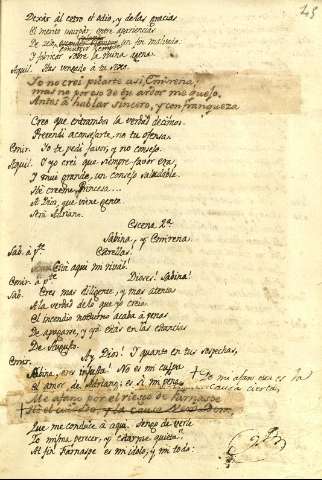 45
Dexar al cetro el odio, y de las gracias
El merito usurpar, entre apariencias
De zelo, un fin malvado
Y fabricar sobre la ruina agena.
Aquil. Has vengado à tu sexo
Yo no crei pícarte asi, Emirena,
mas no por eso de tu ardor me quejo.
Antes a hablar sincero, y con franqueza
Creo que entrambos la verdad decimos.
Pretendi aconsejarte, no tu ofensa.
Emir. Yo te pedi favor, y no consejo.
Aquil. O yo crei que siempre favor era,
Y mui grande, un consejo saludable.
No creeme, Princesa...
A Dios, que viene gente
Será Adriano.
Escena 2ª
Sabina, y Emirena.
Sab. à p.te Estrellas!
Està aqui mi rival!
Emir. à p.te Dioses! Sabina!
Sab. Eres mas diligente, y mas atenta
A la verdad de lo que yo creia.
El incendio nocturno acaba à penas
De apagarse, y yà estás en las estancias
De Augusto.
Emir. Ay Dios! Y quanto en tus sospechas,
Sabina, eres injusta! No es mi culpa
El amor de Adriano; es si mi pena.
+ Yo me afano, esa es la
causa cierta,
Me afano por el riesgo de Farnaspe
+ y la causa
Que me conduce à aqui. Tengo de verle
Yo misma perecer, y estarme quieta?
Al fin Farnaspe es mi idolo, y mi todo: